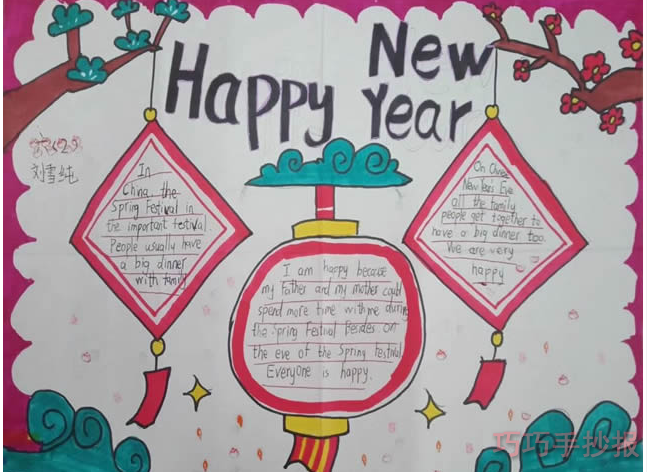 Happy New Year
刘雪纯
In
China, the
Spring Festival in
the important festival.
People usually have
a big dinner
with family
I am happy because
my father and my mother could
spend more time with me during
the Spring Festival Besides on
the eve of the Spring festival
Everyone is happy.
On
New Years Eve
all the family
people get together to
have a big dinner too.
We are very
happy
巧巧手抄报